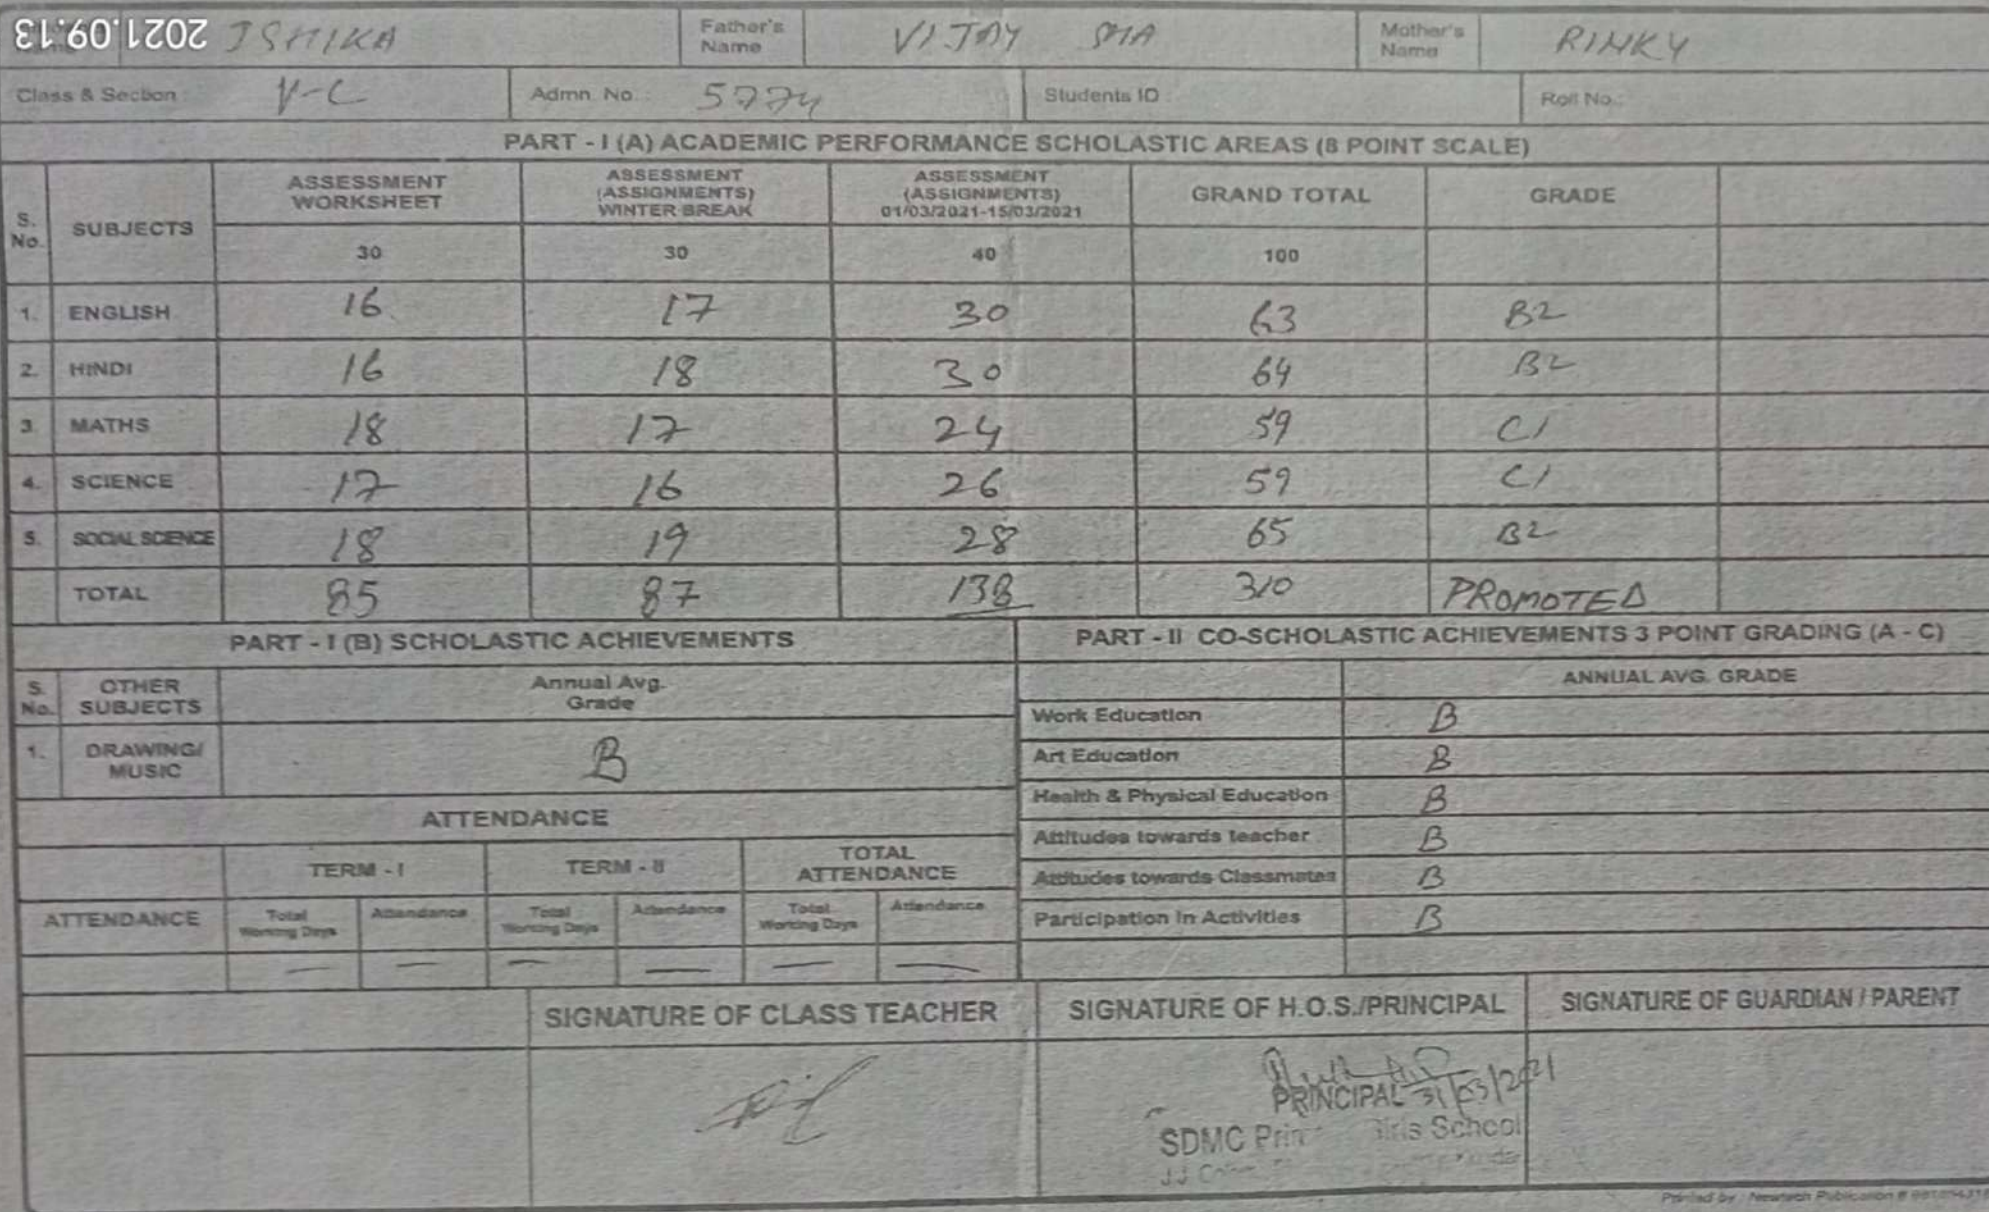 2021.09.13 ISHIKA Father's Name VIJAY SHA Mother's Name RINKY
Class & Section : V-C Admn. No.: 5774 Students ID : Roll No.:
PART - I (A) ACADEMIC PERFORMANCE SCHOLASTIC AREAS (8 POINT SCALE)
S. No. SUBJECTS ASSESSMENT WORKSHEET ASSESSMENT (ASSIGNMENTS) WINTER BREAK ASSESSMENT (ASSIGNMENTS) 01/03/2021-15/03/2021 GRAND TOTAL GRADE
30 30 40 100
1. ENGLISH 16 17 30 63 B2
2. HINDI 16 18 30 64 B2
3. MATHS 18 17 24 59 C1
4. SCIENCE 17 16 26 59 C1
5. SOCIAL SCIENCE 18 19 28 65 B2
TOTAL 85 87 138 310 PROMOTED
PART - I (B) SCHOLASTIC ACHIEVEMENTS
S. No. OTHER SUBJECTS Annual Avg. Grade
1. DRAWING/ MUSIC B
ATTENDANCE
TERM - I TERM - II TOTAL ATTENDANCE
ATTENDANCE Total Working Days Attendance Total Working Days Attendance Total Working Days Attendance
— — — — — —
PART - II CO-SCHOLASTIC ACHIEVEMENTS 3 POINT GRADING (A - C)
ANNUAL AVG. GRADE
Work Education B
Art Education B
Health & Physical Education B
Attitudes towards teacher B
Attitudes towards Classmates B
Participation in Activities B
SIGNATURE OF CLASS TEACHER SIGNATURE OF H.O.S./PRINCIPAL SIGNATURE OF GUARDIAN / PARENT
PRINCIPAL 31/03/2021
SDMC Girls School
J.J.
Printed by : Newtech Publication